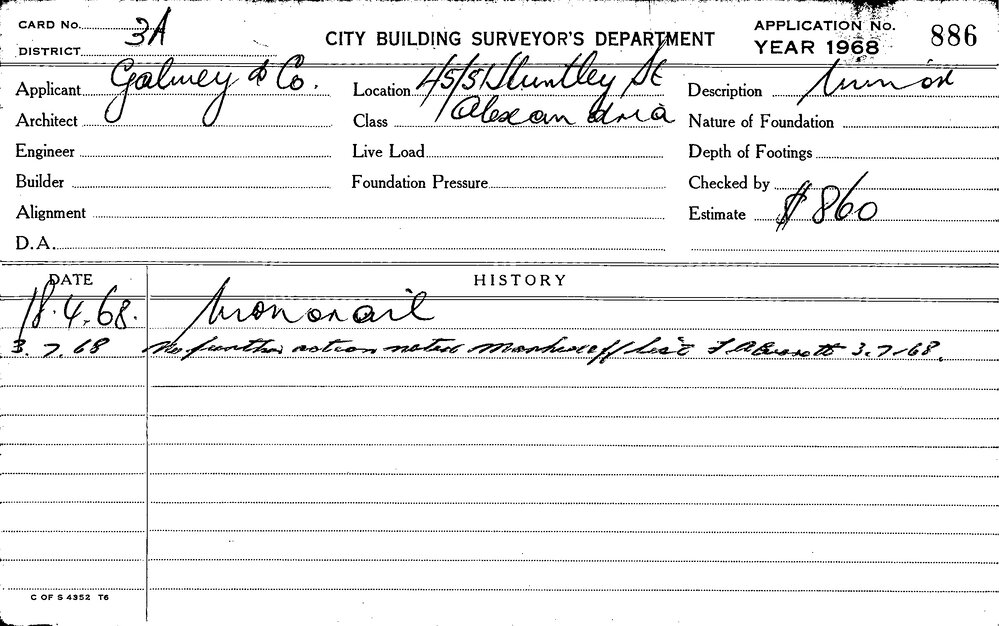 CARD No. 3A
DISTRICT
CITY BUILDING SURVEYOR'S DEPARTMENT
APPLICATION No. 886
YEAR 1968
Applicant Galwey & Co. Location 45/51 Huntley St Description Minor
Architect Class Alexandria Nature of Foundation
Engineer Live Load Depth of Footings
Builder Foundation Pressure Checked by
Alignment Estimate $860
D.A.
DATE HISTORY
18.4.68. Monorail
3.7.68 No further action noted Marked off list 3.7.68.
C OF S 4352 T6